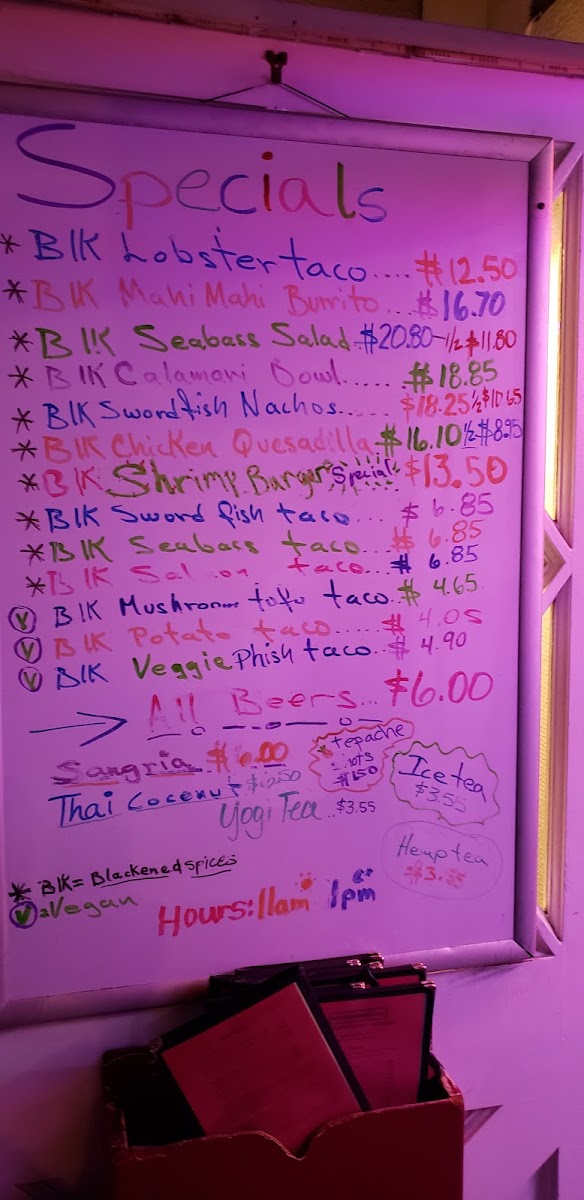 Specials
* Blk Lobster taco.... $12.50
* Blk Mahi Mahi Burrito... $16.70
* Blk Seabass Salad $20.80-1/2 $11.80
* Blk Calamari Bowl..... $18.85
* Blk Swordfish Nachos..... $18.25 1/2 $10.65
* Blk Chicken Quesadilla $16.10 1/2 $8.95
* Blk Shrimp Burger Special $13.50
* Blk Sword fish taco.... $6.85
* Blk Seabass taco.... $6.85
* Blk Sal on taco... $6.85
V Blk Mushroom tofu taco.. $4.65
V Blk Potato taco...... $4.05
V Blk Veggie Phish taco... $4.90
All Beers... $6.00
Sangria $6.00
tepache
$1.50
Ice tea
$3.55
Thai Coconut
Yogi Tea.. $3.55
Hemp tea
$3.55
* Blk = Blackened spices
V = Vegan
Hours: 11am 1pm